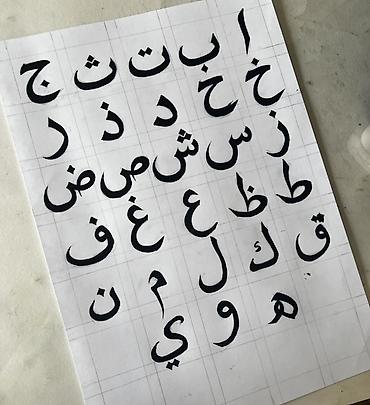 ا ب ت ث ج
خ خ د ذ ر
ز س ش ص ض
ط ظ ع غ ف
ق ك ل م ن
ه و ي